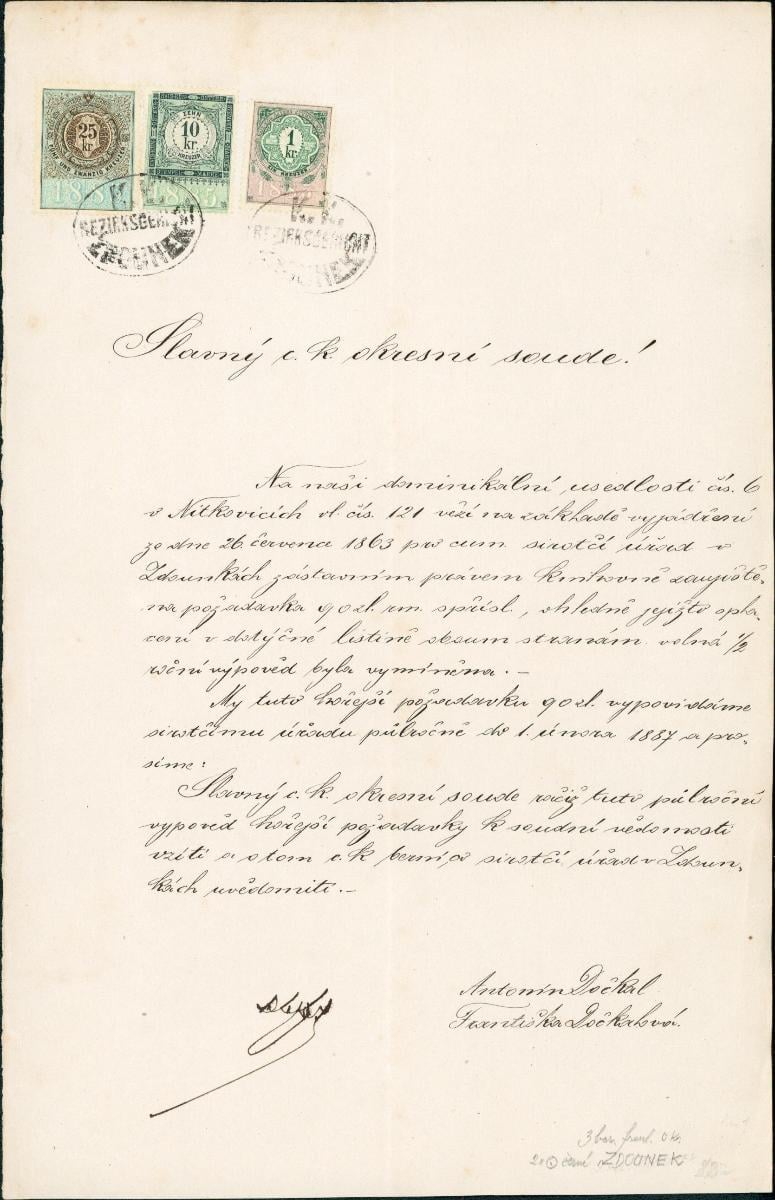 25 kr.
FÜNF UND ZWANZIG KREUZER
188
ZEHN
10 kr.
KREUZER
STEMPEL MARKE
188
1 kr.
EIN KREUZER
188
K. K.
BEZIRKSGERICHT
ZDOUNEK
K. K.
BEZIRKSGERICHT
ZDOUNEK
Slavný c. k. okresní soude!
Na naši dominikální usedlosti čís. 6
v Nitkovicích vl. čís. 121 vězí na základě vyjádření
ze dne 26. června 1863 pro cum. sirotčí úřad v
Zdounkách zástavním právem knihovně zaujiště-
na požadavka 90 zl. rm. s přísl., ohledně jejížto spla-
cení v dotýčné listině oboum stranám volná 1/2
roční výpověd byla vymíněna. -
My tuto hořejší požadavku 90 zl. vypovidáme
sirotčímu úřadu půlročně do 1. února 1887 a pro-
síme:
Slavný c. k. okresní soude račiž tuto půlroční
vypověd hořejší požadavky k soudní vědomosti
vzíti a o tom c. k. berní, co sirotčí úřad v Zdoun-
kách uvědomiti. -
Antonín Dočkal
Františka Dočkalová.
3 bar. 0 kr.
2x černé ZDOUNEK